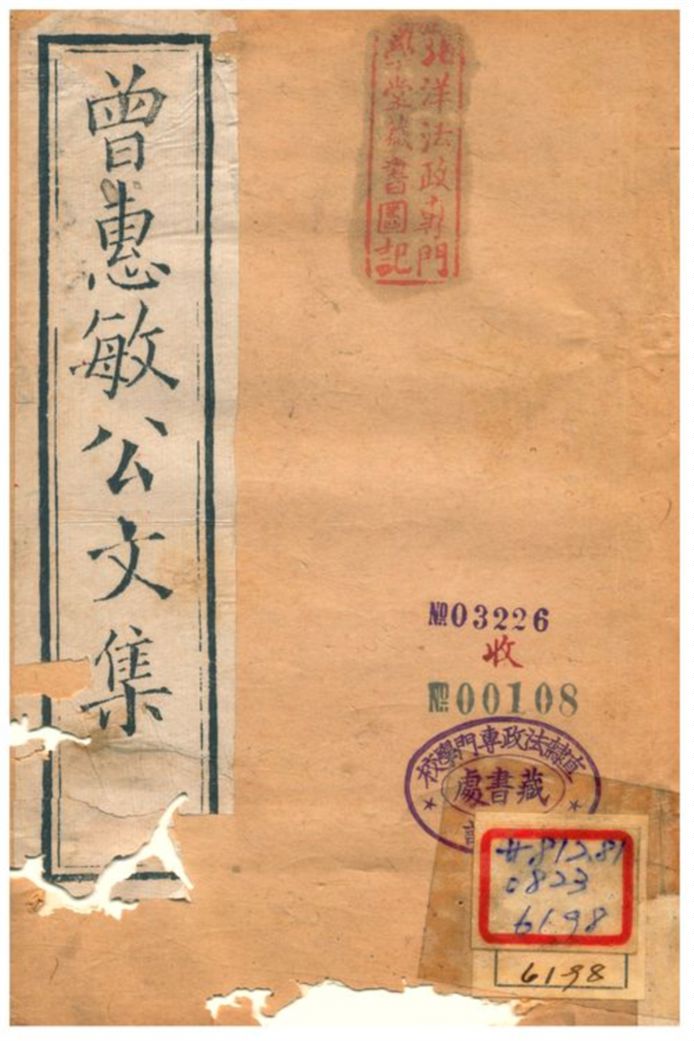 曾惠敏公文集
北洋法政專門
學堂藏書圖記
№03226
收
№00108
直隸法政專門學校
藏書處
812.81
0823
6198
6198